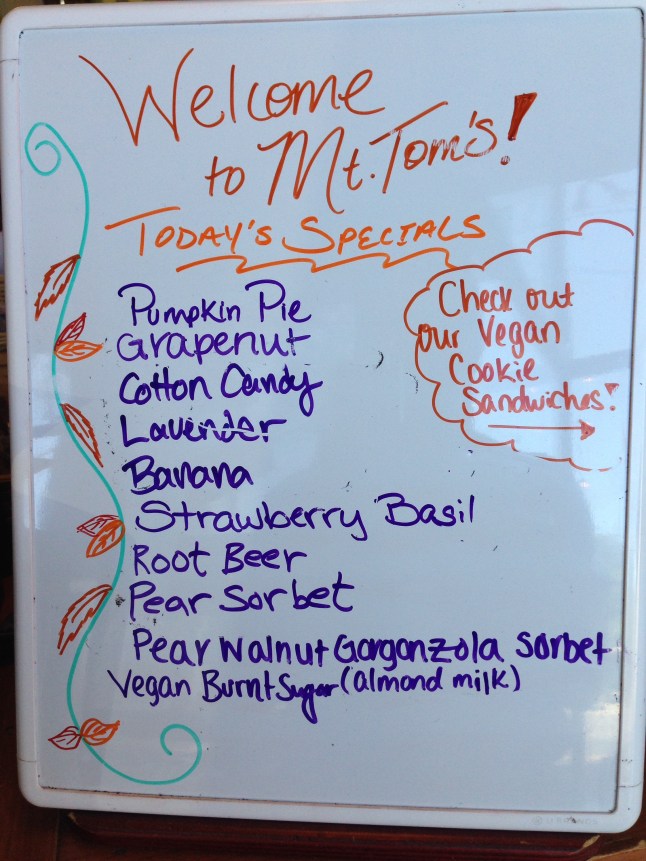 Welcome
to Mt. Tom's!
TODAY'S SPECIALS
Pumpkin Pie
Grapenut
Cotton Candy
Lavender
Banana
Strawberry Basil
Root Beer
Pear Sorbet
Pear Walnut Gorgonzola Sorbet
Vegan Burnt Sugar (almond milk)
Check out
our Vegan
Cookie
Sandwiches!